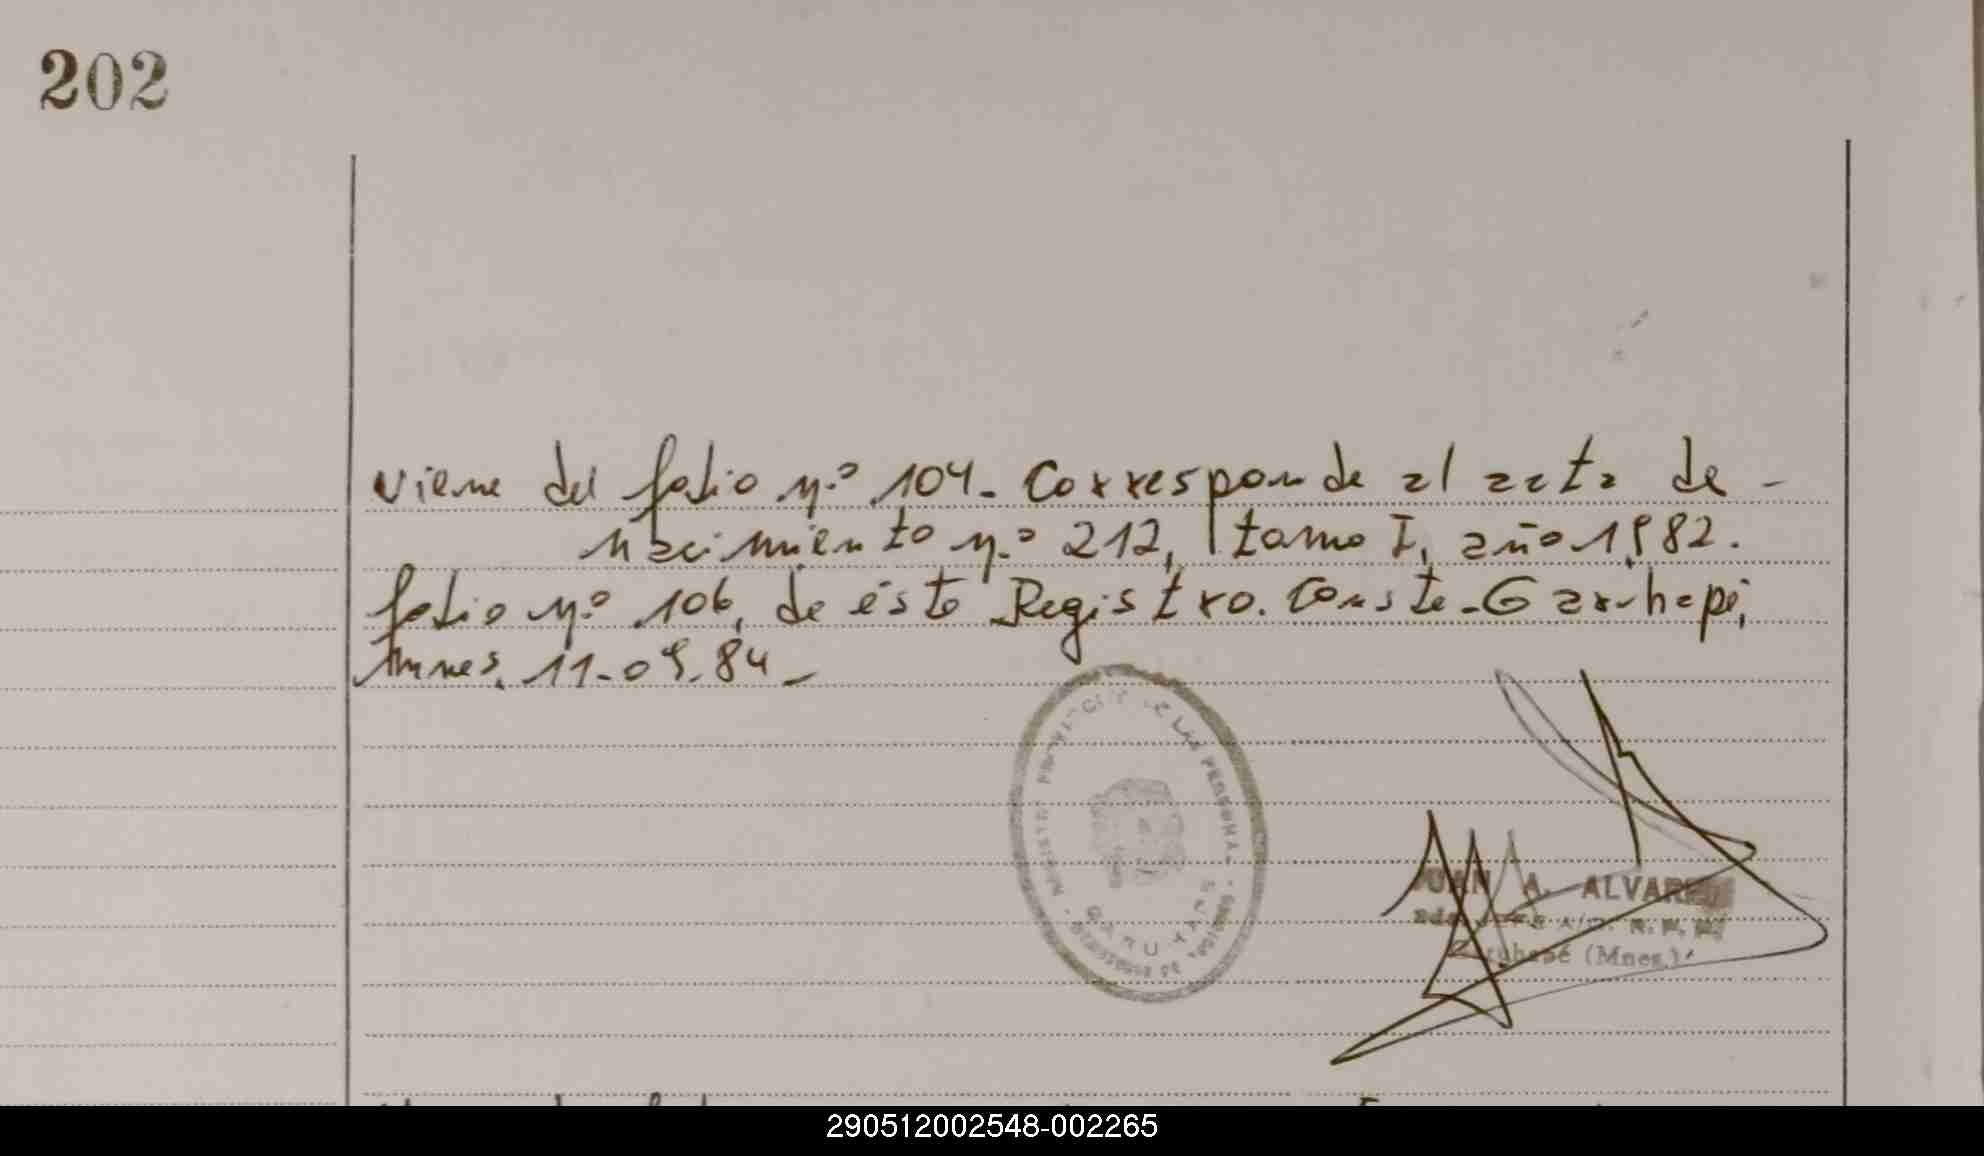 202
viene del folio n.º 104. Corresponde al acta de -
nacimiento n.º 212, tomo I, año 1982.
folio nº 106, de éste Registro. Conste. Garuhapé,
Mnes. 11-09-84 -
DE LAS PERSONAS
JUAN A. ALVAREZ
Garuhapé (Mnes.)
290512002548-002265